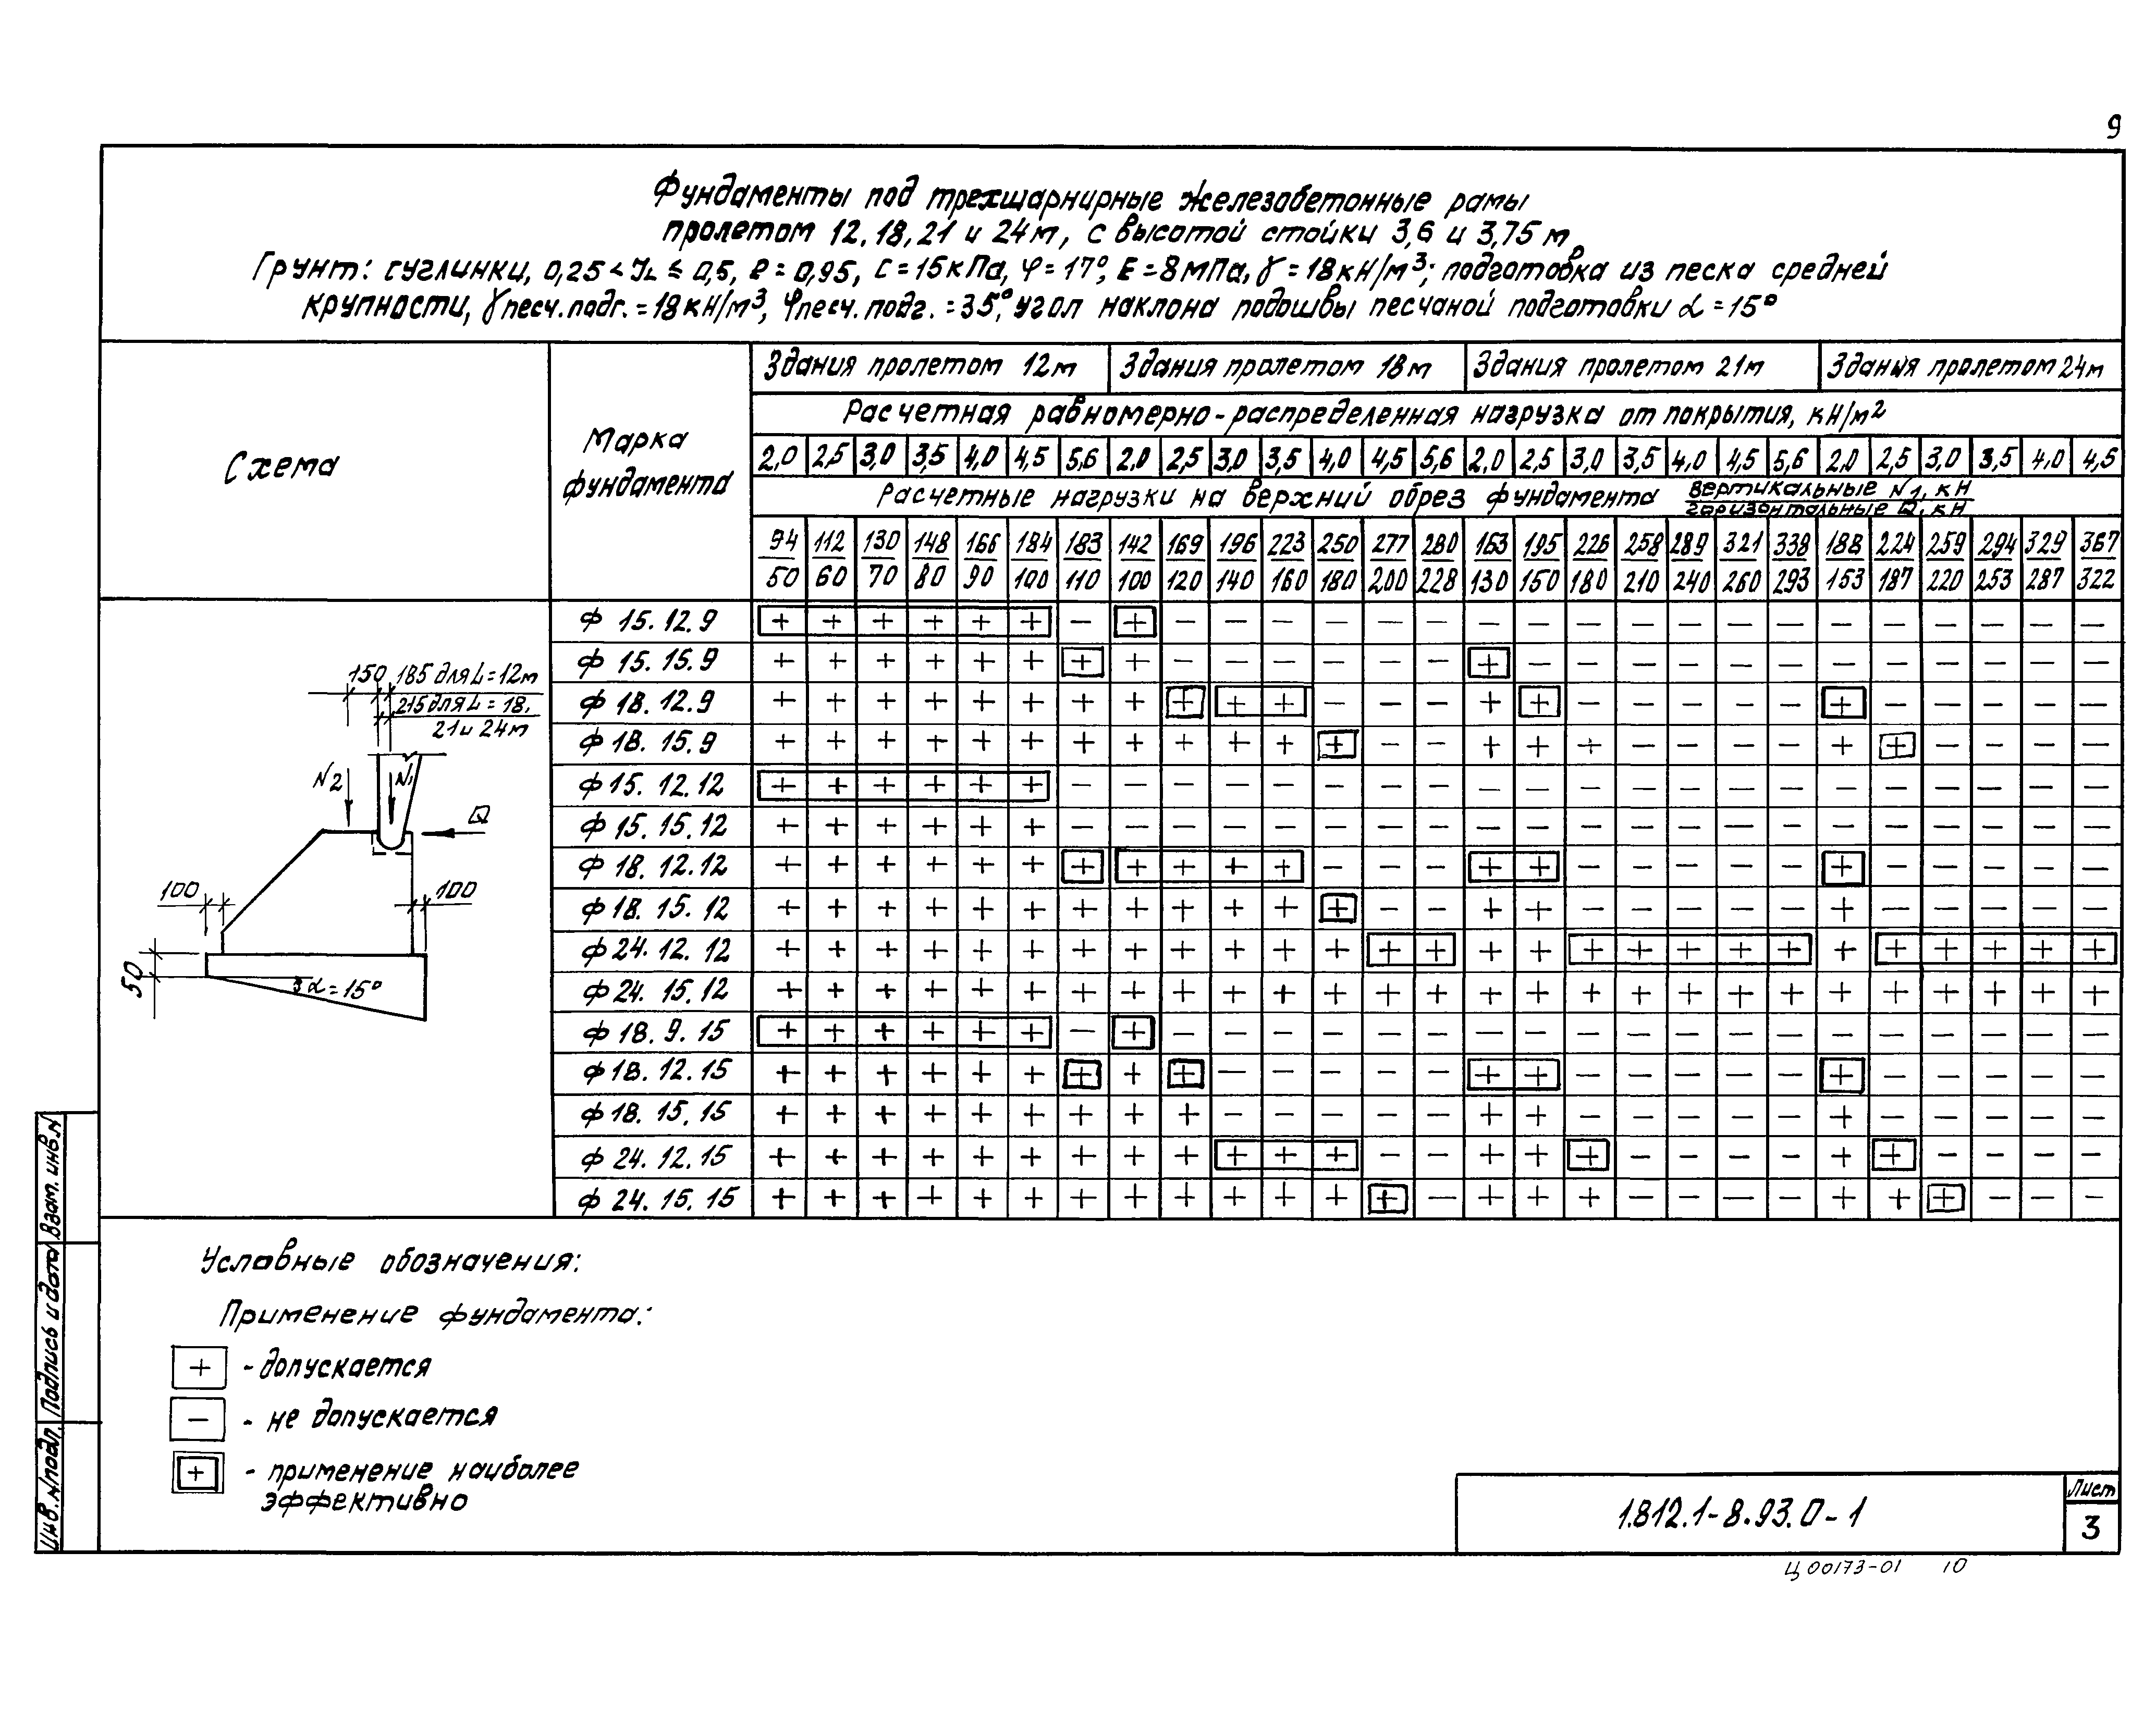 9
Фундаменты под трехшарнирные железобетонные рамы
пролетом 12, 18, 21 и 24 м, с высотой стойки 3,6 и 3,75 м.
Грунт: суглинки, 0,25 < JL ≤ 0,5, e = 0,95, C = 15 кПа, φ = 17°, E = 8 МПа, γ = 18 кН/м³; подготовка из песка средней
крупности, γпесч.подг. = 18 кН/м³, φпесч.подг. = 35°, угол наклона подошвы песчаной подготовки α = 15°
Схема
Марка фундамента
Здания пролетом 12м Здания пролетом 18м Здания пролетом 21м Здания пролетом 24м
Расчетная равномерно-распределенная нагрузка от покрытия, кН/м²
2,0 2,5 3,0 3,5 4,0 4,5 5,6 2,0 2,5 3,0 3,5 4,0 4,5 5,6 2,0 2,5 3,0 3,5 4,0 4,5 5,6 2,0 2,5 3,0 3,5 4,0 4,5
Расчетные нагрузки на верхний обрез фундамента вертикальные N1, кН
горизонтальные Q, кН
94 112 130 148 166 184 183 142 169 196 223 250 277 280 163 195 226 258 289 321 338 188 224 259 294 329 367
50 60 70 80 90 100 110 100 120 140 160 180 200 228 130 150 180 210 240 260 293 153 187 220 253 287 322
Ф 15.12.9 + + + + + + − + − − − − − − − − − − − − − − − − − − −
Ф 15.15.9 + + + + + + + + − − − − − − + − − − − − − − − − − − −
Ф 18.12.9 + + + + + + + + + + + − − − + + − − − − − + − − − − −
Ф 18.15.9 + + + + + + + + + + + + − − + + + − − − − + + − − − −
Ф 15.12.12 + + + + + + − − − − − − − − − − − − − − − − − − − − −
Ф 15.15.12 + + + + + + − − − − − − − − − − − − − − − − − − − − −
Ф 18.12.12 + + + + + + + + + + + − − − + + − − − − − + − − − − −
Ф 18.15.12 + + + + + + + + + + + + − − + + − − − − − + − − − − −
Ф 24.12.12 + + + + + + + + + + + + + + + + + + + + + + + + + + +
Ф 24.15.12 + + + + + + + + + + + + + + + + + + + + + + + + + + +
Ф 18.9.15 + + + + + + − + − − − − − − − − − − − − − − − − − − −
Ф 18.12.15 + + + + + + + + + − − − − − + + − − − − − + − − − − −
Ф 18.15.15 + + + + + + + + + − − − − − + + − − − − − + − − − − −
Ф 24.12.15 + + + + + + + + + + + + − − + + + − − − − + + − − − −
Ф 24.15.15 + + + + + + + + + + + + + − + + + − − − − + + + − − −
150 185 для L = 12м
215 для L = 18,
21 и 24м
N2 N1
Q
100 100
50
α = 15°
Условные обозначения:
Применение фундамента:
+ - допускается
− - не допускается
+ - применение наиболее
эффективно
Инв.№подл. Подпись и дата Взам.инв.№
1.812.1-8.93.0-1
Лист
3
Ц00173-01 10